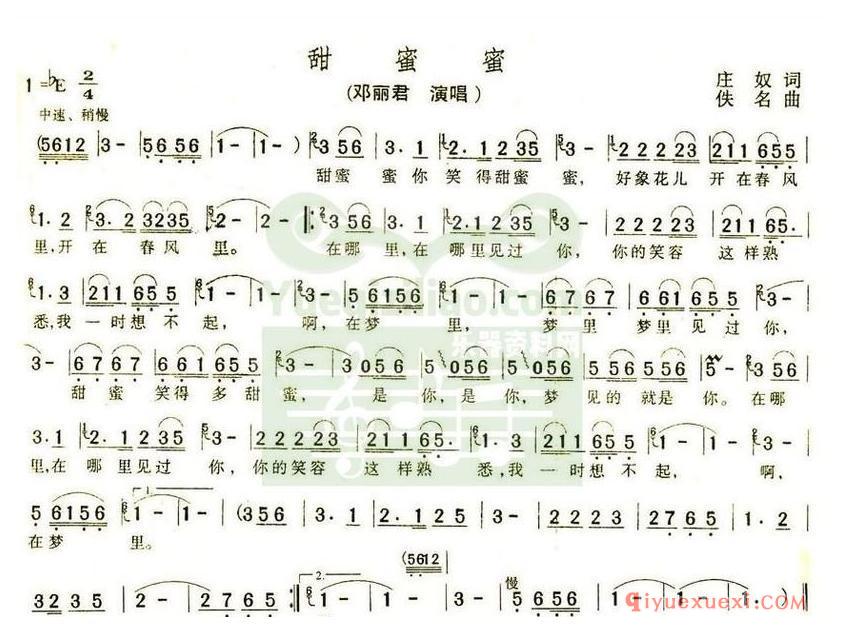 甜 蜜 蜜
1=♭E 2/4
(邓丽君 演唱)
庄 奴 词
佚 名 曲
中速、稍慢
(5612 | 3 - | 5656 | 1 - | 1 - ) | 3 56 | 3. 1 | 2. 1235 | 3 - | 2 2 2 23 | 211 655 |
甜蜜 蜜你 笑得甜蜜 蜜, 好象花儿 开在春风
1. 2 | 3. 2 3235 | 2 - | 2 - |: 3 56 | 3. 1 | 2. 1235 | 3 - | 2 2 2 23 | 211 65. |
里,开在 春风 里。 在哪 里,在 哪里见过 你, 你的笑容 这样熟
1. 3 | 211 655 | 3 - | 5 6156 | 1 - | 1 - | 6767 | 6765 | 3 - |
悉,我 一时想 不 起, 啊, 在梦 里, 梦里 梦里见过你,
3 - | 6767 | 661 655 | 3 - | 3 056 | 5 056 | 5 056 | 556 556 | 5 - | 3 56 |
甜蜜 笑得多甜蜜, 是你,是你,梦见的就是你。在哪
3. 1 | 2. 1235 | 3 - | 2 2 2 23 | 211 65. | 1. 3 | 211 655 | 1 - | 1 - | 3 - |
里,在 哪里见过 你, 你的笑容 这样熟 悉,我 一时想 不 起, 啊,
5 6156 | 1 - | 1 - | (356 | 3. 1 | 2. 125 | 3 - | 2 2 2 23 | 2765 | 1. 2 |
在梦 里。
(5612
3235 | 2 - | 2 - | 2765 :| 2. 1 - | 1 - | 3 - | 慢 5 5656 | 1 - | 1 - )
Yueqiziliao.com
乐器资料网
qiyuexuexi.COM